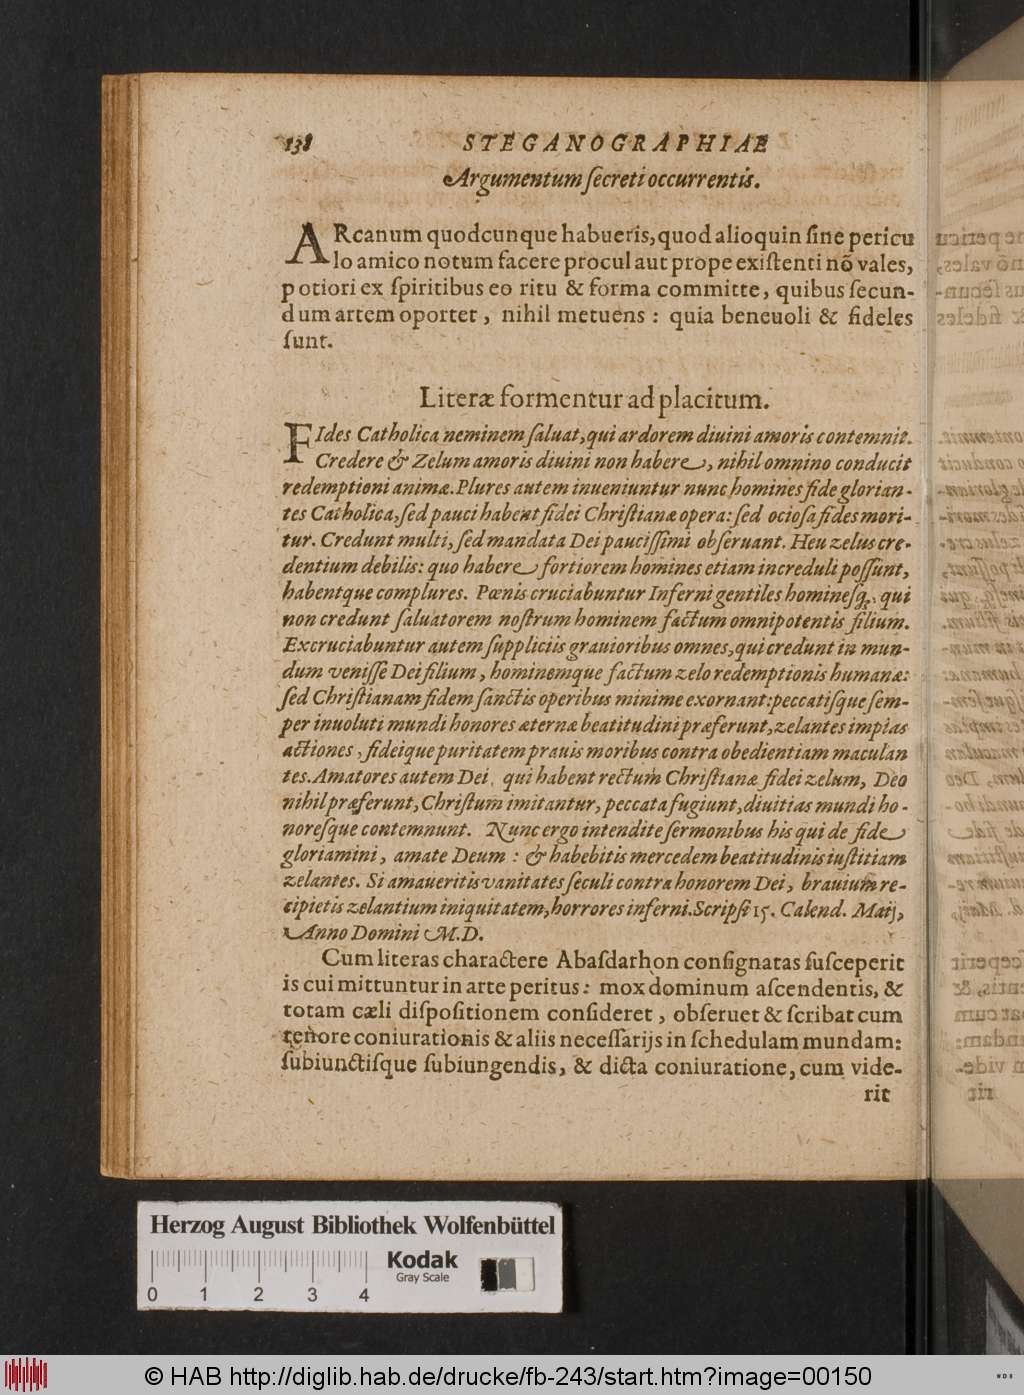 138 STEGANOGRAPHIAE
Argumentum ſecreti occurrentis.
ARcanum quodcunque habueris, quod alioquin ſine pericu
lo amico notum facere procul aut prope exiſtenti nõ vales,
potiori ex ſpiritibus eo ritu & forma committe, quibus ſecun-
dum artem oportet, nihil metuens: quia beneuoli & fideles
ſunt.
Literæ formentur ad placitum.
FIdes Catholica neminem ſaluat, qui ardorem diuini amoris contemnit.
Credere & Zelum amoris diuini non habere, nihil omnino conducit
redemptioni animæ. Plures autem inueniuntur nunc homines fide glorian-
tes Catholica, ſed pauci habent fidei Chriſtianæ opera: ſed ocioſa fides mori-
tur. Credunt multi, ſed mandata Dei pauciſſimi obſeruant. Heu zelus cre-
dentium debilis: quo habere fortiorem homines etiam increduli poſſunt,
habentque complures. Pœnis cruciabuntur Inferni gentiles hominesq;, qui
non credunt ſaluatorem noſtrum hominem factum omnipotentis filium.
Excruciabuntur autem ſuppliciis grauioribus omnes, qui credunt in mun-
dum veniſſe Dei filium, hominemque factum zelo redemptionis humanæ:
ſed Chriſtianam fidem ſanctis operibus minime exornant: peccatiſque ſem-
per inuoluti mundi honores æternæ beatitudini præferunt, zelantes impias
actiones, fideique puritatem prauis moribus contra obedientiam maculan
tes. Amatores autem Dei, qui habent rectum Chriſtianæ fidei zelum, Deo
nihil præferunt, Chriſtum imitantur, peccata fugiunt, diuitias mundi ho-
noreſque contemnunt. Nunc ergo intendite ſermonibus his qui de fide
gloriamini, amate Deum: & habebitis mercedem beatitudinis iuſtitiam
zelantes. Si amaueritis vanitates ſeculi contra honorem Dei, brauium re-
cipietis zelantium iniquitatem, horrores inferni. Scripſi 15. Calend. Maij,
Anno Domini M.D.
Cum literas charactere Abaſdarhòn conſignatas ſuſceperit
is cui mittuntur in arte peritus: mox dominum aſcendentis, &
totam cæli diſpoſitionem conſideret, obſeruet & ſcribat cum
tenore coniurationis & aliis neceſſarijs in ſchedulam mundam:
ſubiunctiſque ſubiungendis, & dicta coniuratione, cum vide-
rit
Herzog August Bibliothek Wolfenbüttel
Kodak
Gray Scale
0 1 2 3 4
© HAB http://diglib.hab.de/drucke/fb-243/start.htm?image=00150